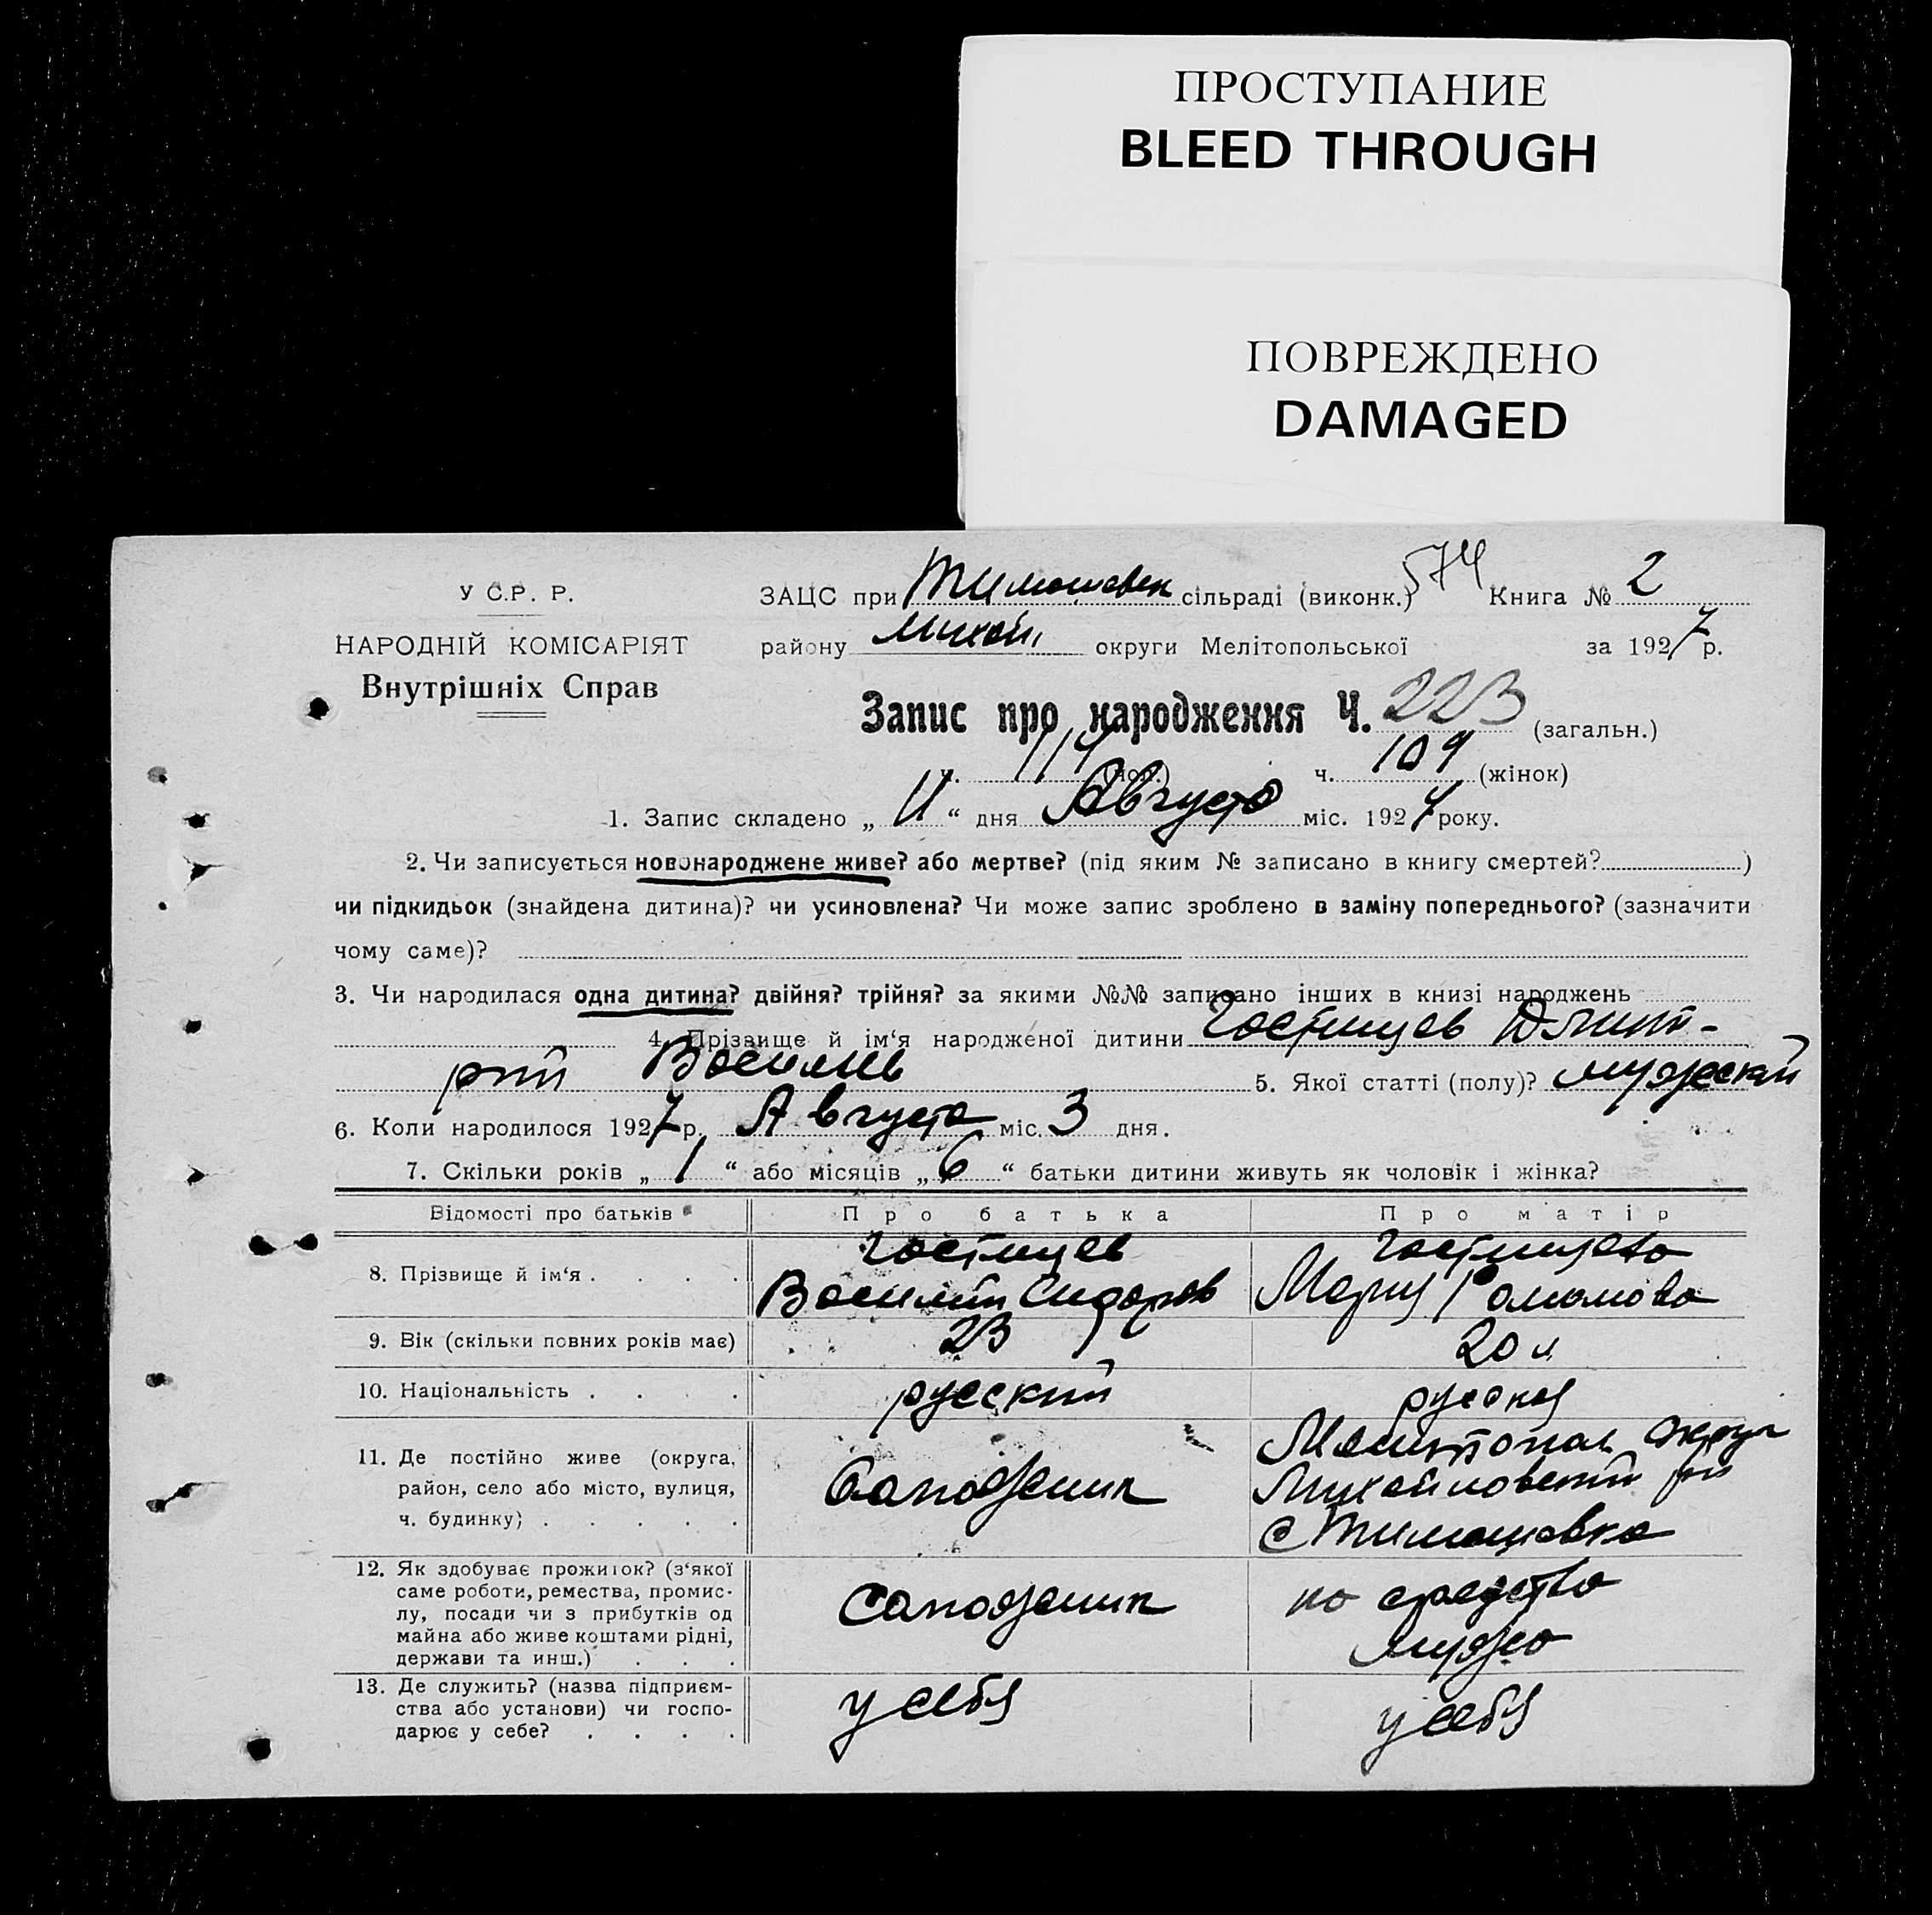 ПРОСТУПАНИЕ
BLEED THROUGH
ПОВРЕЖДЕНО
DAMAGED
574
У С.Р. Р. ЗАЦС при Тимошевск сільраді (виконк.) Книга № 2
НАРОДНІЙ КОМІСАРІЯТ району Михай округи Мелітопольської за 1927 р.
Внутрішніх Справ
Запис про народження Ч. 223 (загальн.)
114 ч. 109 (жінок)
1. Запис складено „ 11 “ дня Августа міс. 1927 року.
2. Чи записується новонароджене живе? або мертве? (під яким № записано в книгу смертей? )
чи підкидьок (знайдена дитина)? чи усиновлена? Чи може запис зроблено в заміну попереднього? (зазначити
чому саме)?
3. Чи народилася одна дитина? двійня? трійня? за якими №№ записано інших в книзі народжень
4. Прізвище й ім‘я народженої дитини Гостищев Дмит-
рий Василь 5. Якої статті (полу)? мужеский
6. Коли народилося 1927 р. Августа міс. 3 дня.
7. Скільки років „ 1 “ або місяців „ 6 “ батьки дитини живуть як чоловік і жінка?
Відомості про батьків Про батька Про матір
8. Прізвище й ім‘я . . . . Гостищев Василий Сидоров Гостищева Мария Романова
9. Вік (скільки повних років має) 23 20 л
10. Національність . . . . русский русская
11. Де постійно живе (округа, Мелитопол округ
район, село або місто, вулиця, Сапожник Михайловский рн
ч. будинку) . . . . . с Тимошовка
12. Як здобуває прожиток? (з‘якої
саме роботи, ремества, промис- на средства
лу, посади чи з прибутків од Сапожник
майна або живе коштами рідні, мужа
держави та инш.) . . .
13. Де служить? (назва підприєм-
ства або установи) чи госпо- у себя у себя
дарює у себе? . . . .